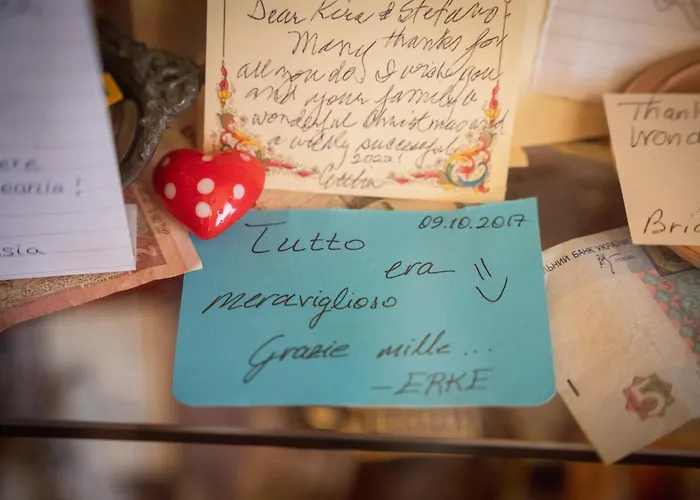 Dear Kira & Stefano
Many thanks for
all you do. I wish you
and your family a
wonderful Christmas and
a wildly successful
2022!
09.10.2017
Tutto
era
meraviglioso
Grazie mille...
-ERKE
ere
!
sia
Thank
Wond
Bri
НИЙ БАНК УКРАЇ
5